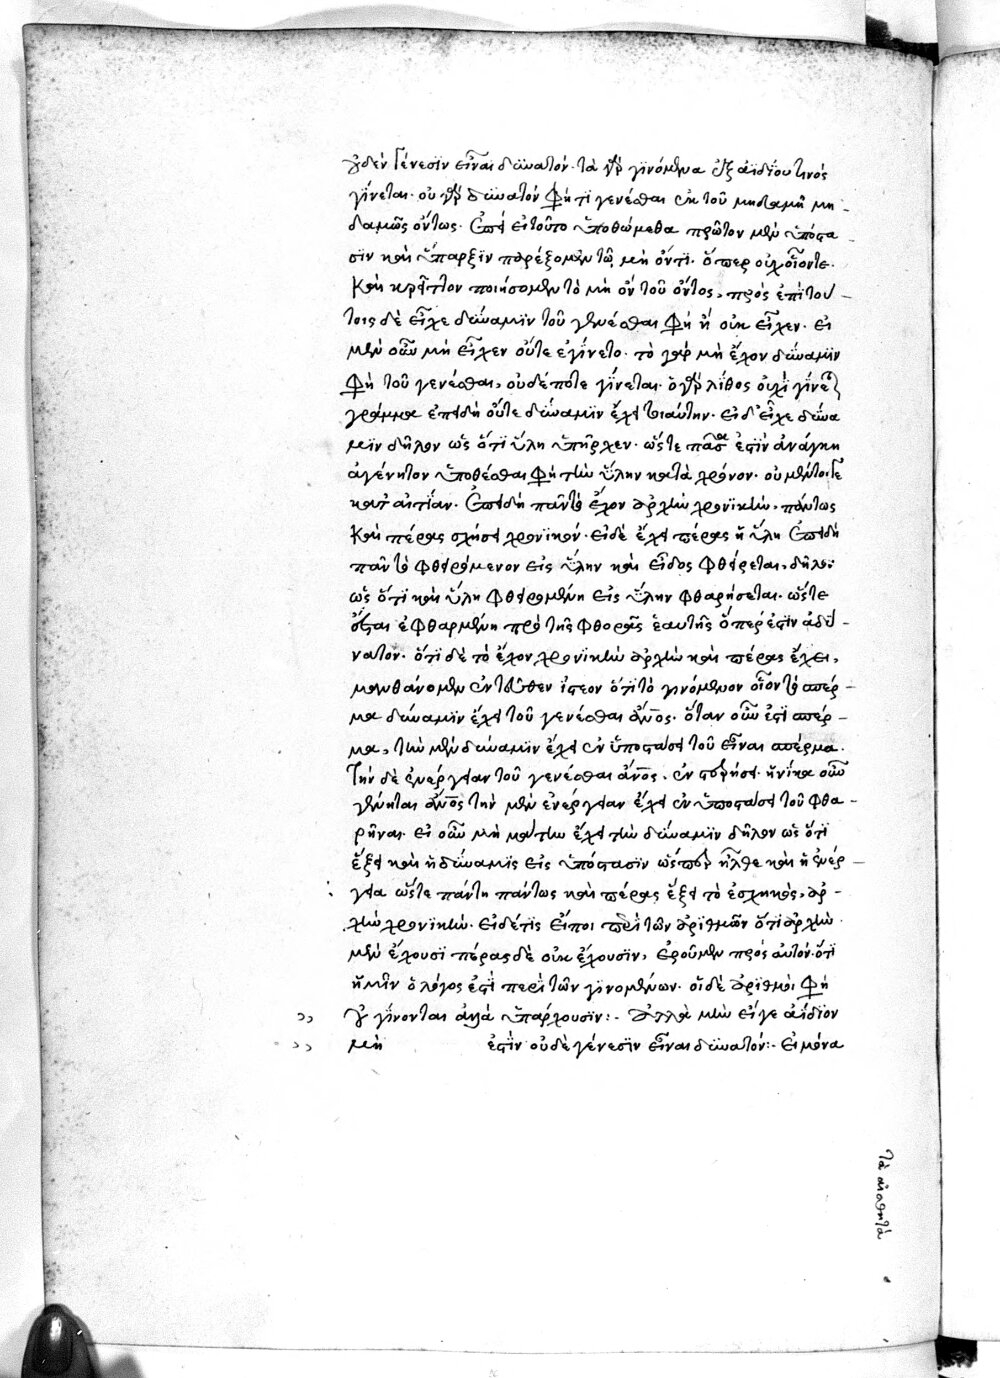 οὐδὲν γένεσιν εἶναι δυνατόν· τὰ γὰρ γινόμενα ἐξ ἀϊδίου τινός
γίνεται· οὐ γὰρ δυνατόν φησι τι γενέσθαι ἐκ τοῦ μηδαμῇ μη-
δαμῶς ὄντως· ἐπεὶ εἰ τοῦτο ὑποθώμεθα πρῶτον μὲν ὑπόστα
σιν καὶ ὕπαρξιν παρέξομεν τῷ μὴ ὄντι· ὅπερ οὐχ οἷόντε·
καὶ κρεῖττον ποιήσομεν τὸ μὴ ὂν τοῦ ὄντος, πρὸς ἐπὶ τού-
τοις δὲ εἶχε δύναμιν τοῦ γενέσθαι φησὶ ἢ οὐκ εἶχεν· εἰ
μὲν οὖν μὴ εἶχεν οὔτε ἐγίνετο· τὸ γὰρ μὴ ἔχον δύναμιν
φησὶ τοῦ γενέσθαι, οὐδέποτε γίνεται· ὁ γὰρ λίθος οὐχὶ γίνεται
γράμμα ἐπειδὴ οὔτε δύναμιν ἔχει τοιαύτην· εἰ δ' εἶχε δύνα
μιν δῆλον ὡς ὅτι ὕλη ὑπῆρχεν· ὥστε πᾶσα ἐστὶν ἀνάγκη
ἀγένητον ὑποθέσθαι φησὶ τὴν ὕλην κατὰ χρόνον· οὐ μέντοιγε
κατ' αἰτίαν· ἐπειδὴ πᾶν τὸ ἔχον ἀρχὴν χρονικήν, πάντως
καὶ πέρας σχήσει χρονικόν· εἰ δὲ ἔχει πέρας ἡ ὕλη ἐπειδὴ
πᾶν τὸ φθειρόμενον εἰς ὕλην καὶ εἶδος φθείρεται, δῆλον
ὡς ὅτι καὶ ὕλη φθειρομένη εἰς ὕλην φθαρήσεται· ὥστε
ἔσται ἐφθαρμένη πρὸ τῆς φθορᾶς ἑαυτῆς ὅπερ ἐστὶν ἀδύ-
νατον· ὅτι δὲ τὸ ἔχον χρονικὴν ἀρχὴν καὶ πέρας ἔχει,
μανθάνομεν ἐντεῦθεν ἰστέον ὅτι τὸ γινόμενον οἷον τὸ σπέρ-
μα δύναμιν ἔχει τοῦ γενέσθαι ἄνος· ὅταν οὖν ἐστι σπέρ-
μα, τὴν μὲν δύναμιν ἔχει ἐν ὑποστάσει τοῦ εἶναι σπέρμα·
τὴν δὲ ἐνέργειαν τοῦ γενέσθαι ἄνος, ἐν στερήσει· ἡνίκα οὖν
γένηται ἄνος τὴν μὲν ἐνέργειαν ἔχει ἐν ὑποστάσει τοῦ φθα-
ρῆναι· εἰ οὖν μὴ μάτην ἔχει τὴν δύναμιν δῆλον ὡς ὅτι
ἕξει καὶ ἡ δύναμις εἰς ὑπόστασιν ὥσπερ ἦλθε καὶ ἡ ἐνέρ-
γεια ὥστε πάντη πάντως καὶ πέρας ἕξει τὸ ἐσχηκὸς, ἀρ-
χὴν χρονικήν· εἰ δέ τις εἴποι περὶ τῶν ἀριθμῶν ὅτι ἀρχὴν
μὲν ἔχουσι πέρας δὲ οὐκ ἔχουσιν, ἐροῦμεν πρὸς αὐτόν· ὅτι
ἡμῖν ὁ λόγος ἐστὶ περὶ τῶν γινομένων· οἱ δὲ ἀριθμοί φησι
οὐ γίνονται ἀλλὰ ὑπάρχουσιν:- ἀλλὰ μὴν εἴγε ἀΐδιον
μὴ ἐστὶν οὐδὲ γένεσιν εἶναι δυνατόν:- εἰ μόνα
τὰ αἰσθητὰ